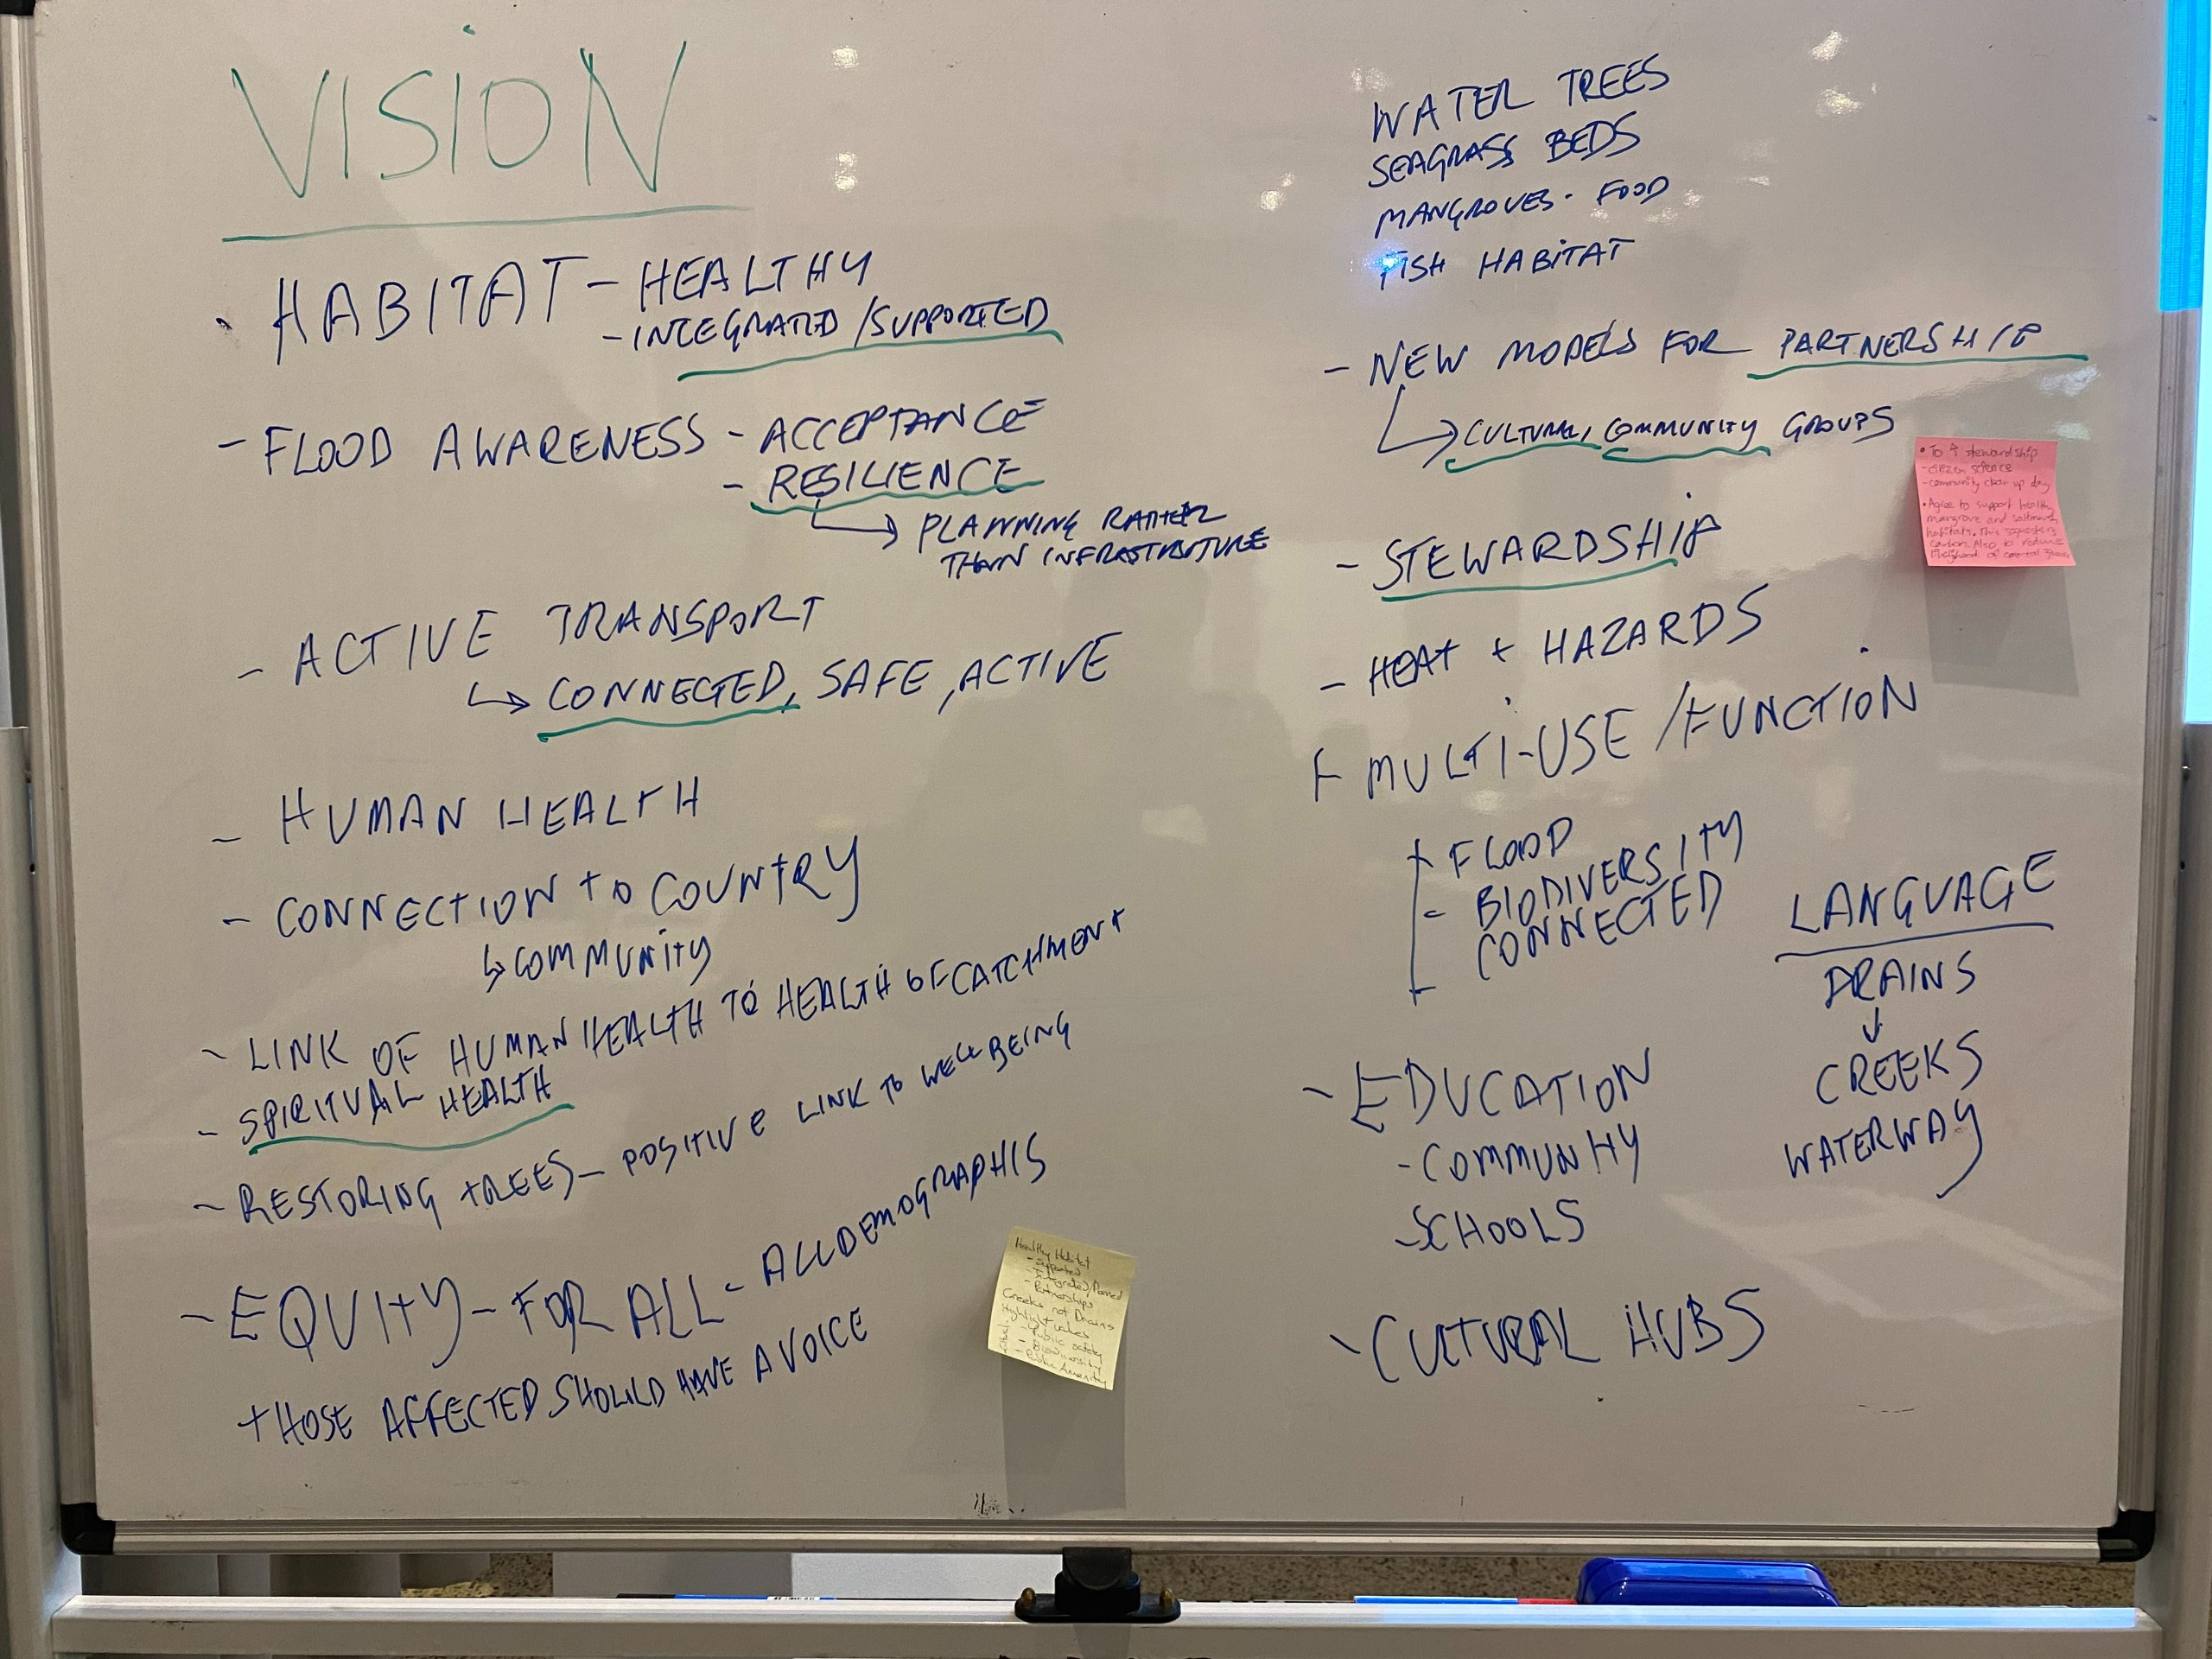 VISION
• HABITAT - HEALTHY
- INTEGRATED / SUPPORTED
- FLOOD AWARENESS - ACCEPTANCE
- RESILIENCE
↳ PLANNING RATHER
THAN INFRASTRUTURE
- ACTIVE TRANSPORT
↳ CONNECTED, SAFE, ACTIVE
- HUMAN HEALTH
- CONNECTION to COUNTRY
↳ COMMUNITY
- LINK OF HUMAN HEALTH TO HEALTH OF CATCHMENT
- SPIRITUAL HEALTH
- RESTORING TREES - POSITIVE LINK TO WELLBEING
- EQUITY - FOR ALL - ALL DEMOGRAPHIS
THOSE AFFECTED SHOULD HAVE A VOICE
Healthy Habitat
- Supported
- Integrated/Planned
- Partnerships
Creeks not Drains
Highlight values
- Public safety
- Biodiversity
- Public Amenity
WATER TREES
SEAGRASS BEDS
MANGROVES - FOOD
FISH HABITAT
- NEW MODELS FOR PARTNERSHIP
↳ CULTURAL, COMMUNITY GROUPS
• To ↑ stewardship
- citizen science
- community clean up day
• Agree to support healthy
mangrove and saltmarsh
habitats. This sequesters
carbon. Also to reduce
likelihood of coastal
- STEWARDSHIP
- HEAT + HAZARDS
- MULTI-USE / FUNCTION
- FLOOD
- BIODIVERSITY
CONNECTED
LANGUAGE
DRAINS
↓
CREEKS
WATERWAY
- EDUCATION
- COMMUNITY
- SCHOOLS
- CULTURAL HUBS